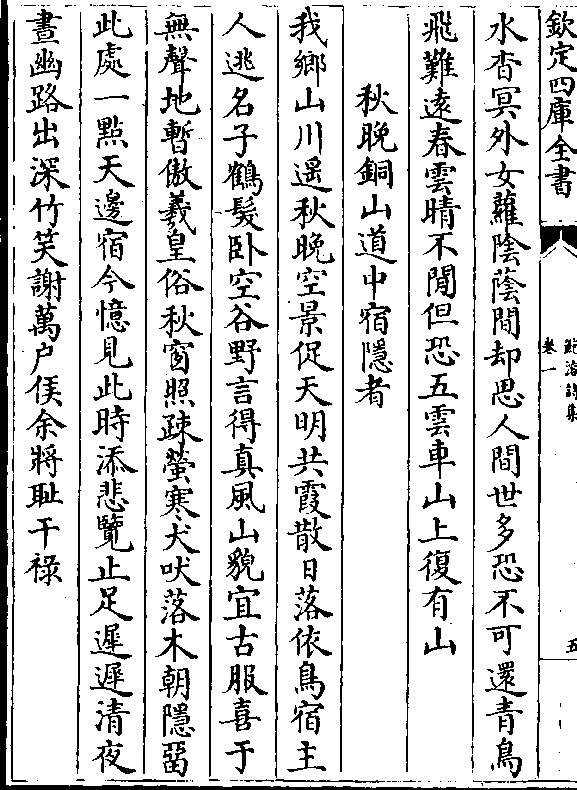 欽定四庫全書
鮑溶詩集
卷一
五
水杳冥外女蘿陰陰間却思人間世多恐不可還青鳥
飛難遠春雲晴不閒但恐五雲車山上復有山
秋晚銅山道中宿隱者
我鄉山川遥秋晚空景促天明共霞散日落依鳥宿主
人逃名子鶴髮卧空谷野言得真風山貌宜古服喜于
無聲地暫傲羲皇俗秋窗照疎螢寒犬吠落木朝隱留
此處一點天邊宿今憶見此時添悲覽止足遲遲清夜
晝幽路出深竹笑謝萬户侯余將耻干祿